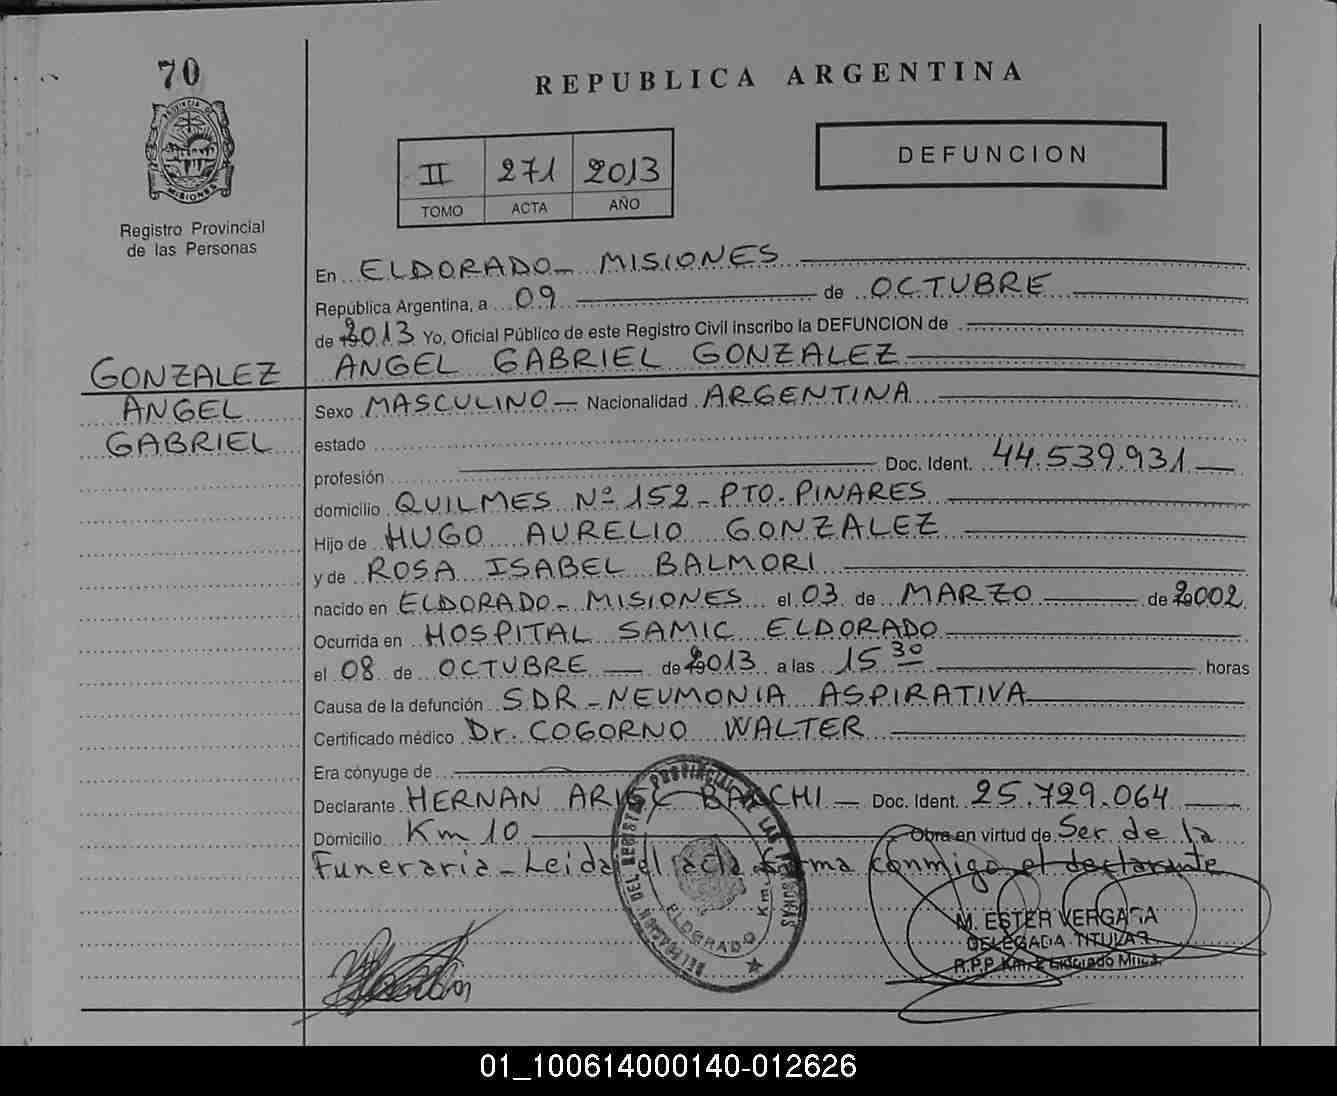 70
PROVINCIA DE
MISIONES
Registro Provincial
de las Personas
REPUBLICA ARGENTINA
II 271 2013
TOMO ACTA AÑO
DEFUNCION
En ELDORADO - MISIONES
República Argentina, a 09 de OCTUBRE
de 2013 Yo, Oficial Público de este Registro Civil inscribo la DEFUNCION de
GONZALEZ ANGEL GABRIEL GONZALEZ
ANGEL Sexo MASCULINO - Nacionalidad ARGENTINA
GABRIEL estado
profesión Doc. Ident. 44.539.931
domicilio QUILMES Nº 152 - PTO. PINARES
Hijo de HUGO AURELIO GONZALEZ
y de ROSA ISABEL BALMORI
nacido en ELDORADO - MISIONES el 03 de MARZO de 2002
Ocurrida en HOSPITAL SAMIC ELDORADO
el 08 de OCTUBRE de 2013 a las 15 30 horas
Causa de la defunción SDR - NEUMONIA ASPIRATIVA
Certificado médico Dr. COGORNO WALTER
Era cónyuge de
Declarante HERNAN Doc. Ident. 25.729.064
Domicilio Km 10 Obra en virtud de Ser de la
Funeraria - Leida el acta firma conmigo el declarante
DELEGACION DEL REGISTRO PROVINCIAL DE LAS PERSONAS
ELDORADO Km.
M. ESTER VERGARA
DELEGADA TITULAR
R.P.P. Km. 2 Eldorado Mnes.
01_100614000140-012626